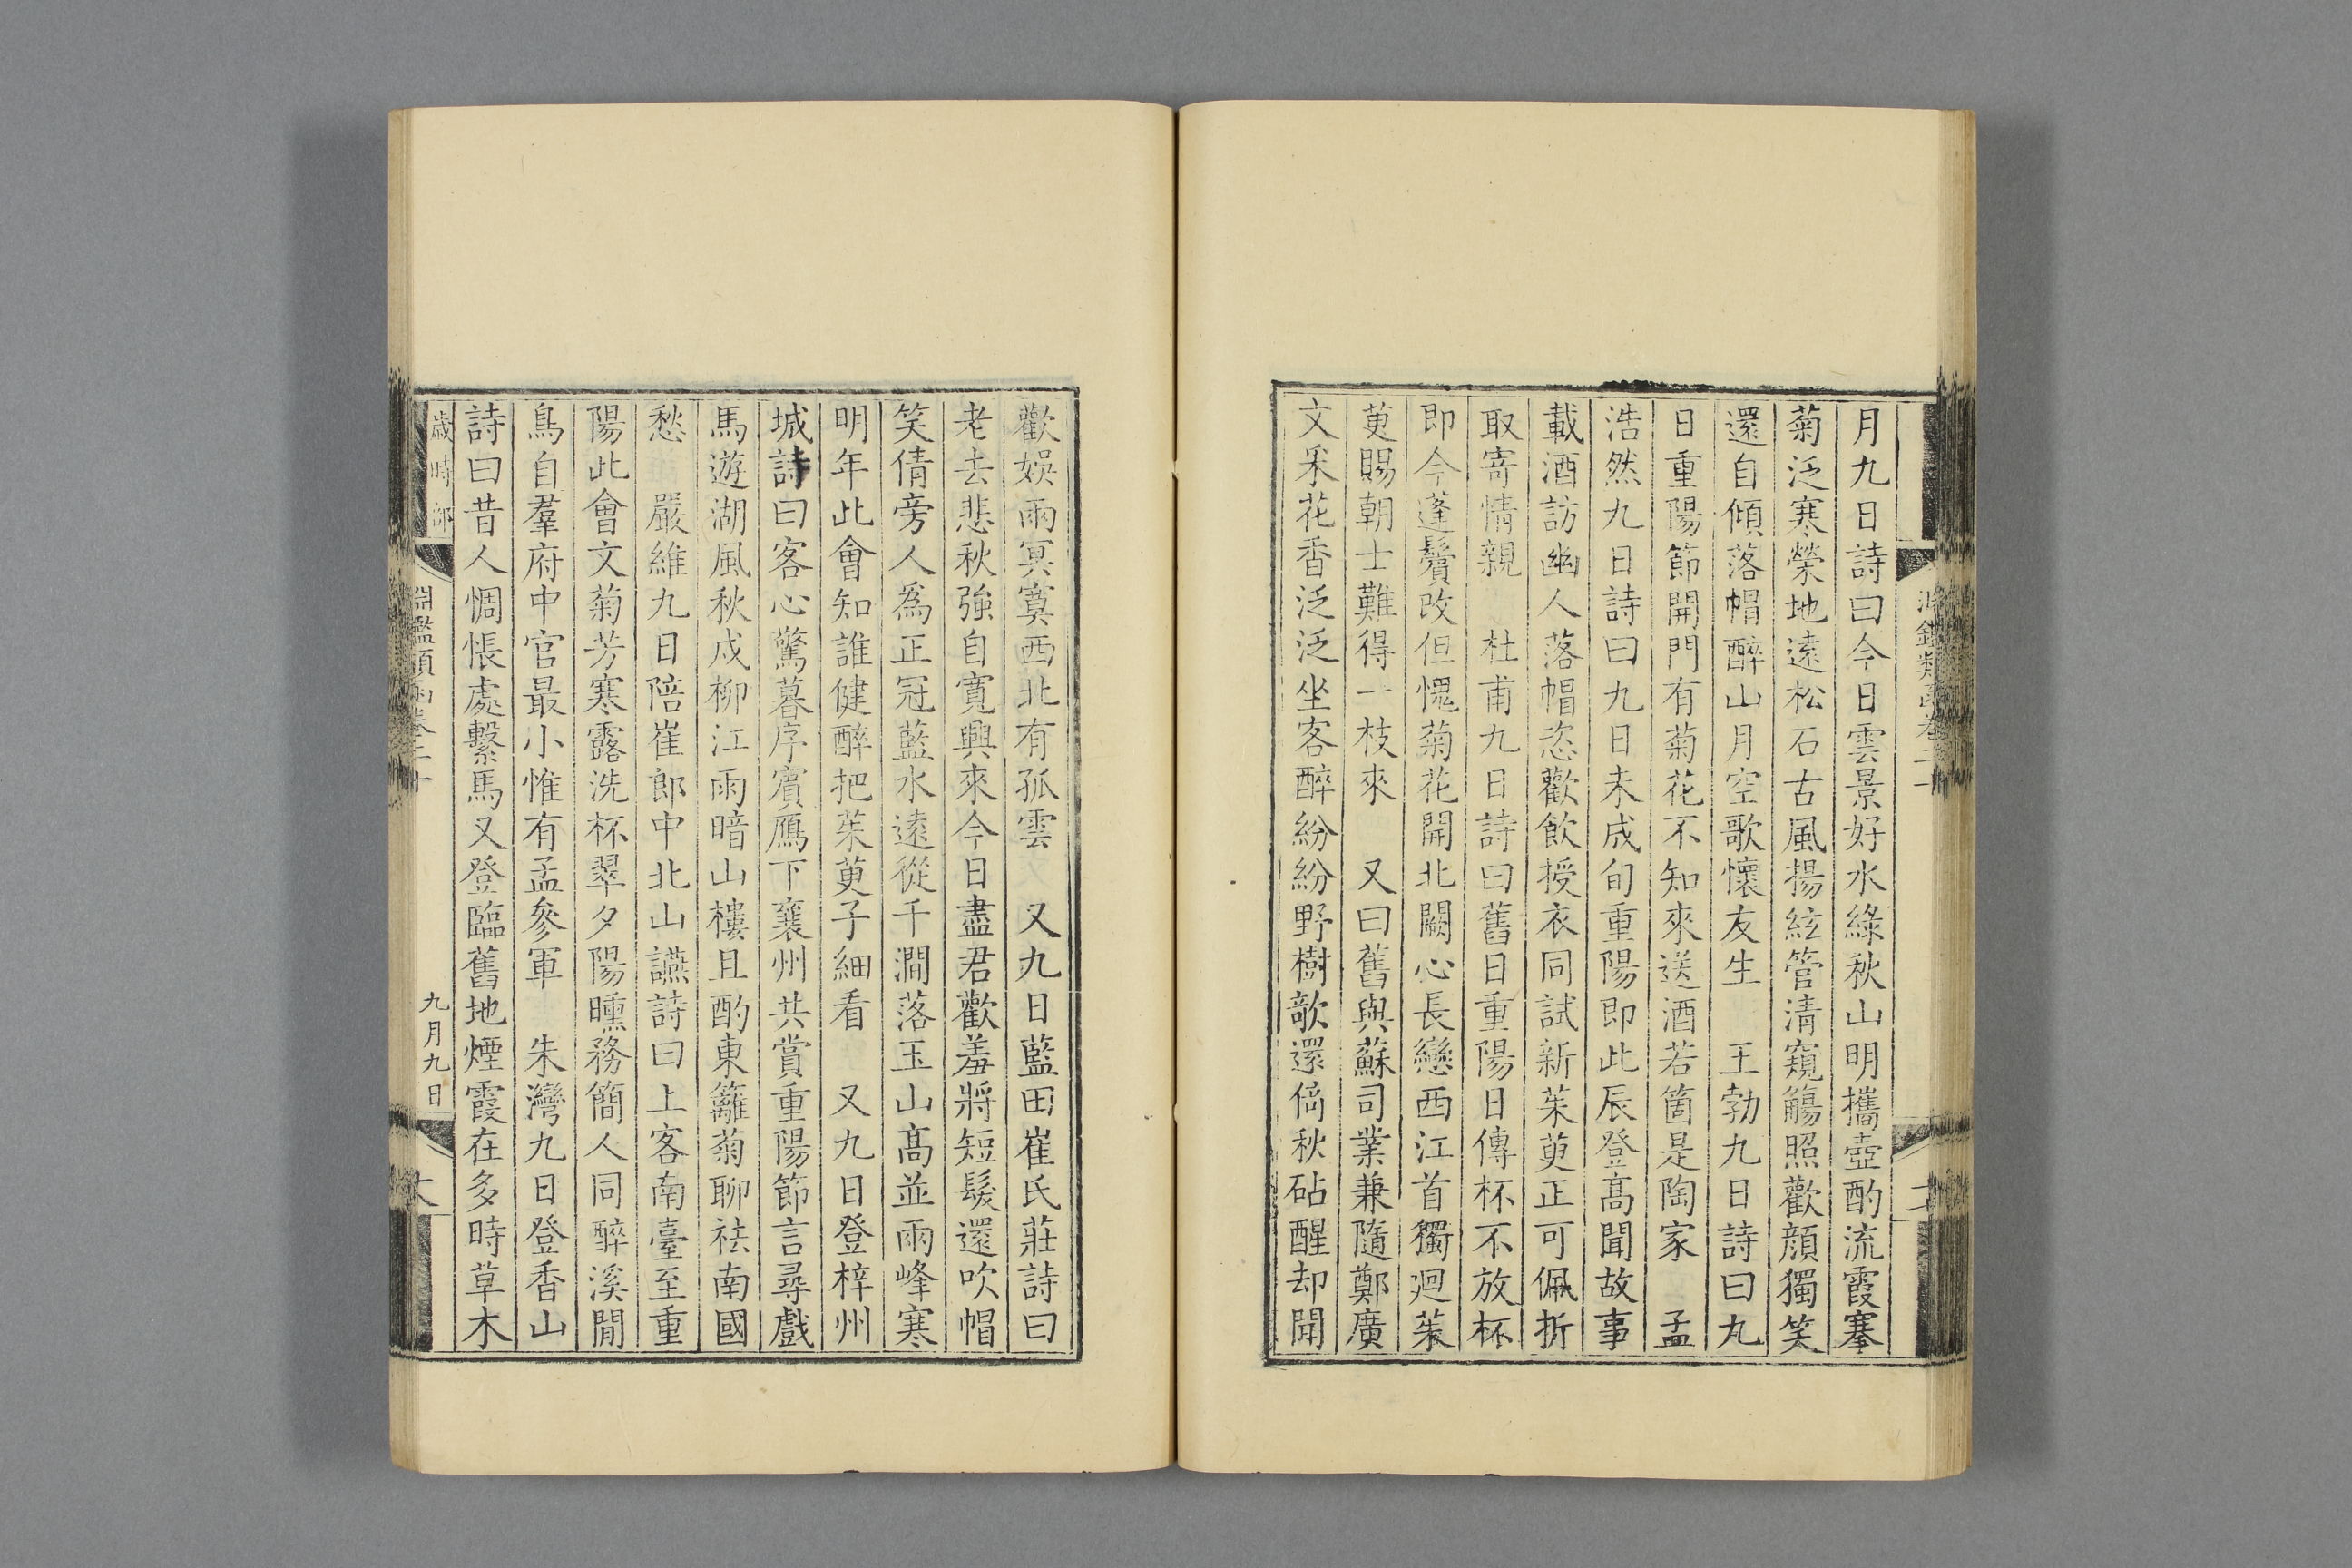 月九日詩曰今日雲景好水綠秋山明攜壺酌流霞搴
菊泛寒榮地遠松石古風揚絃管清窺觴照歡顔獨笑
還自傾落帽醉山月空歌懷友生　王勃九日詩曰九
日重陽節開門有菊花不知來送酒若箇是陶家　孟
浩然九日詩曰九日未成旬重陽即此辰登髙聞故事
載酒訪幽人落帽恣歡飲授衣同試新茱萸正可佩折
取寄情親　杜甫九日詩曰舊日重陽日傳杯不放杯
即今蓬鬢改但愧菊花開北闕心長戀西江首獨廻茱
萸賜朝士難得一枝來　又曰舊與蘇司業兼隨鄭廣
文采花香泛泛坐客醉紛紛野樹歌還倚秋砧醒却聞
歡娛雨冥寞西北有孤雲　又九日藍田崔氏莊詩曰
老去悲秋強自寬興來今日盡君歡羞將短髮還吹帽
笑倩旁人爲正冠藍水遠從千澗落玉山髙並兩峰寒
明年此會知誰健醉把茱萸子細看　又九日登梓州
城詩曰客心驚暮序賓鴈下襄州共賞重陽節言尋戲
馬遊湖風秋戍柳江雨暗山樓且酌東籬菊聊祛南國
愁　嚴維九日陪崔郎中北山讌詩曰上客南臺至重
陽此會文菊芳寒露洗杯翠夕陽曛務簡人同醉溪閒
鳥自羣府中官最小惟有孟參軍　朱灣九日登香山
詩曰昔人惆悵處繫馬又登臨舊地煙霞在多時草木
歲時部
淵鑑類函卷二十
九月九日